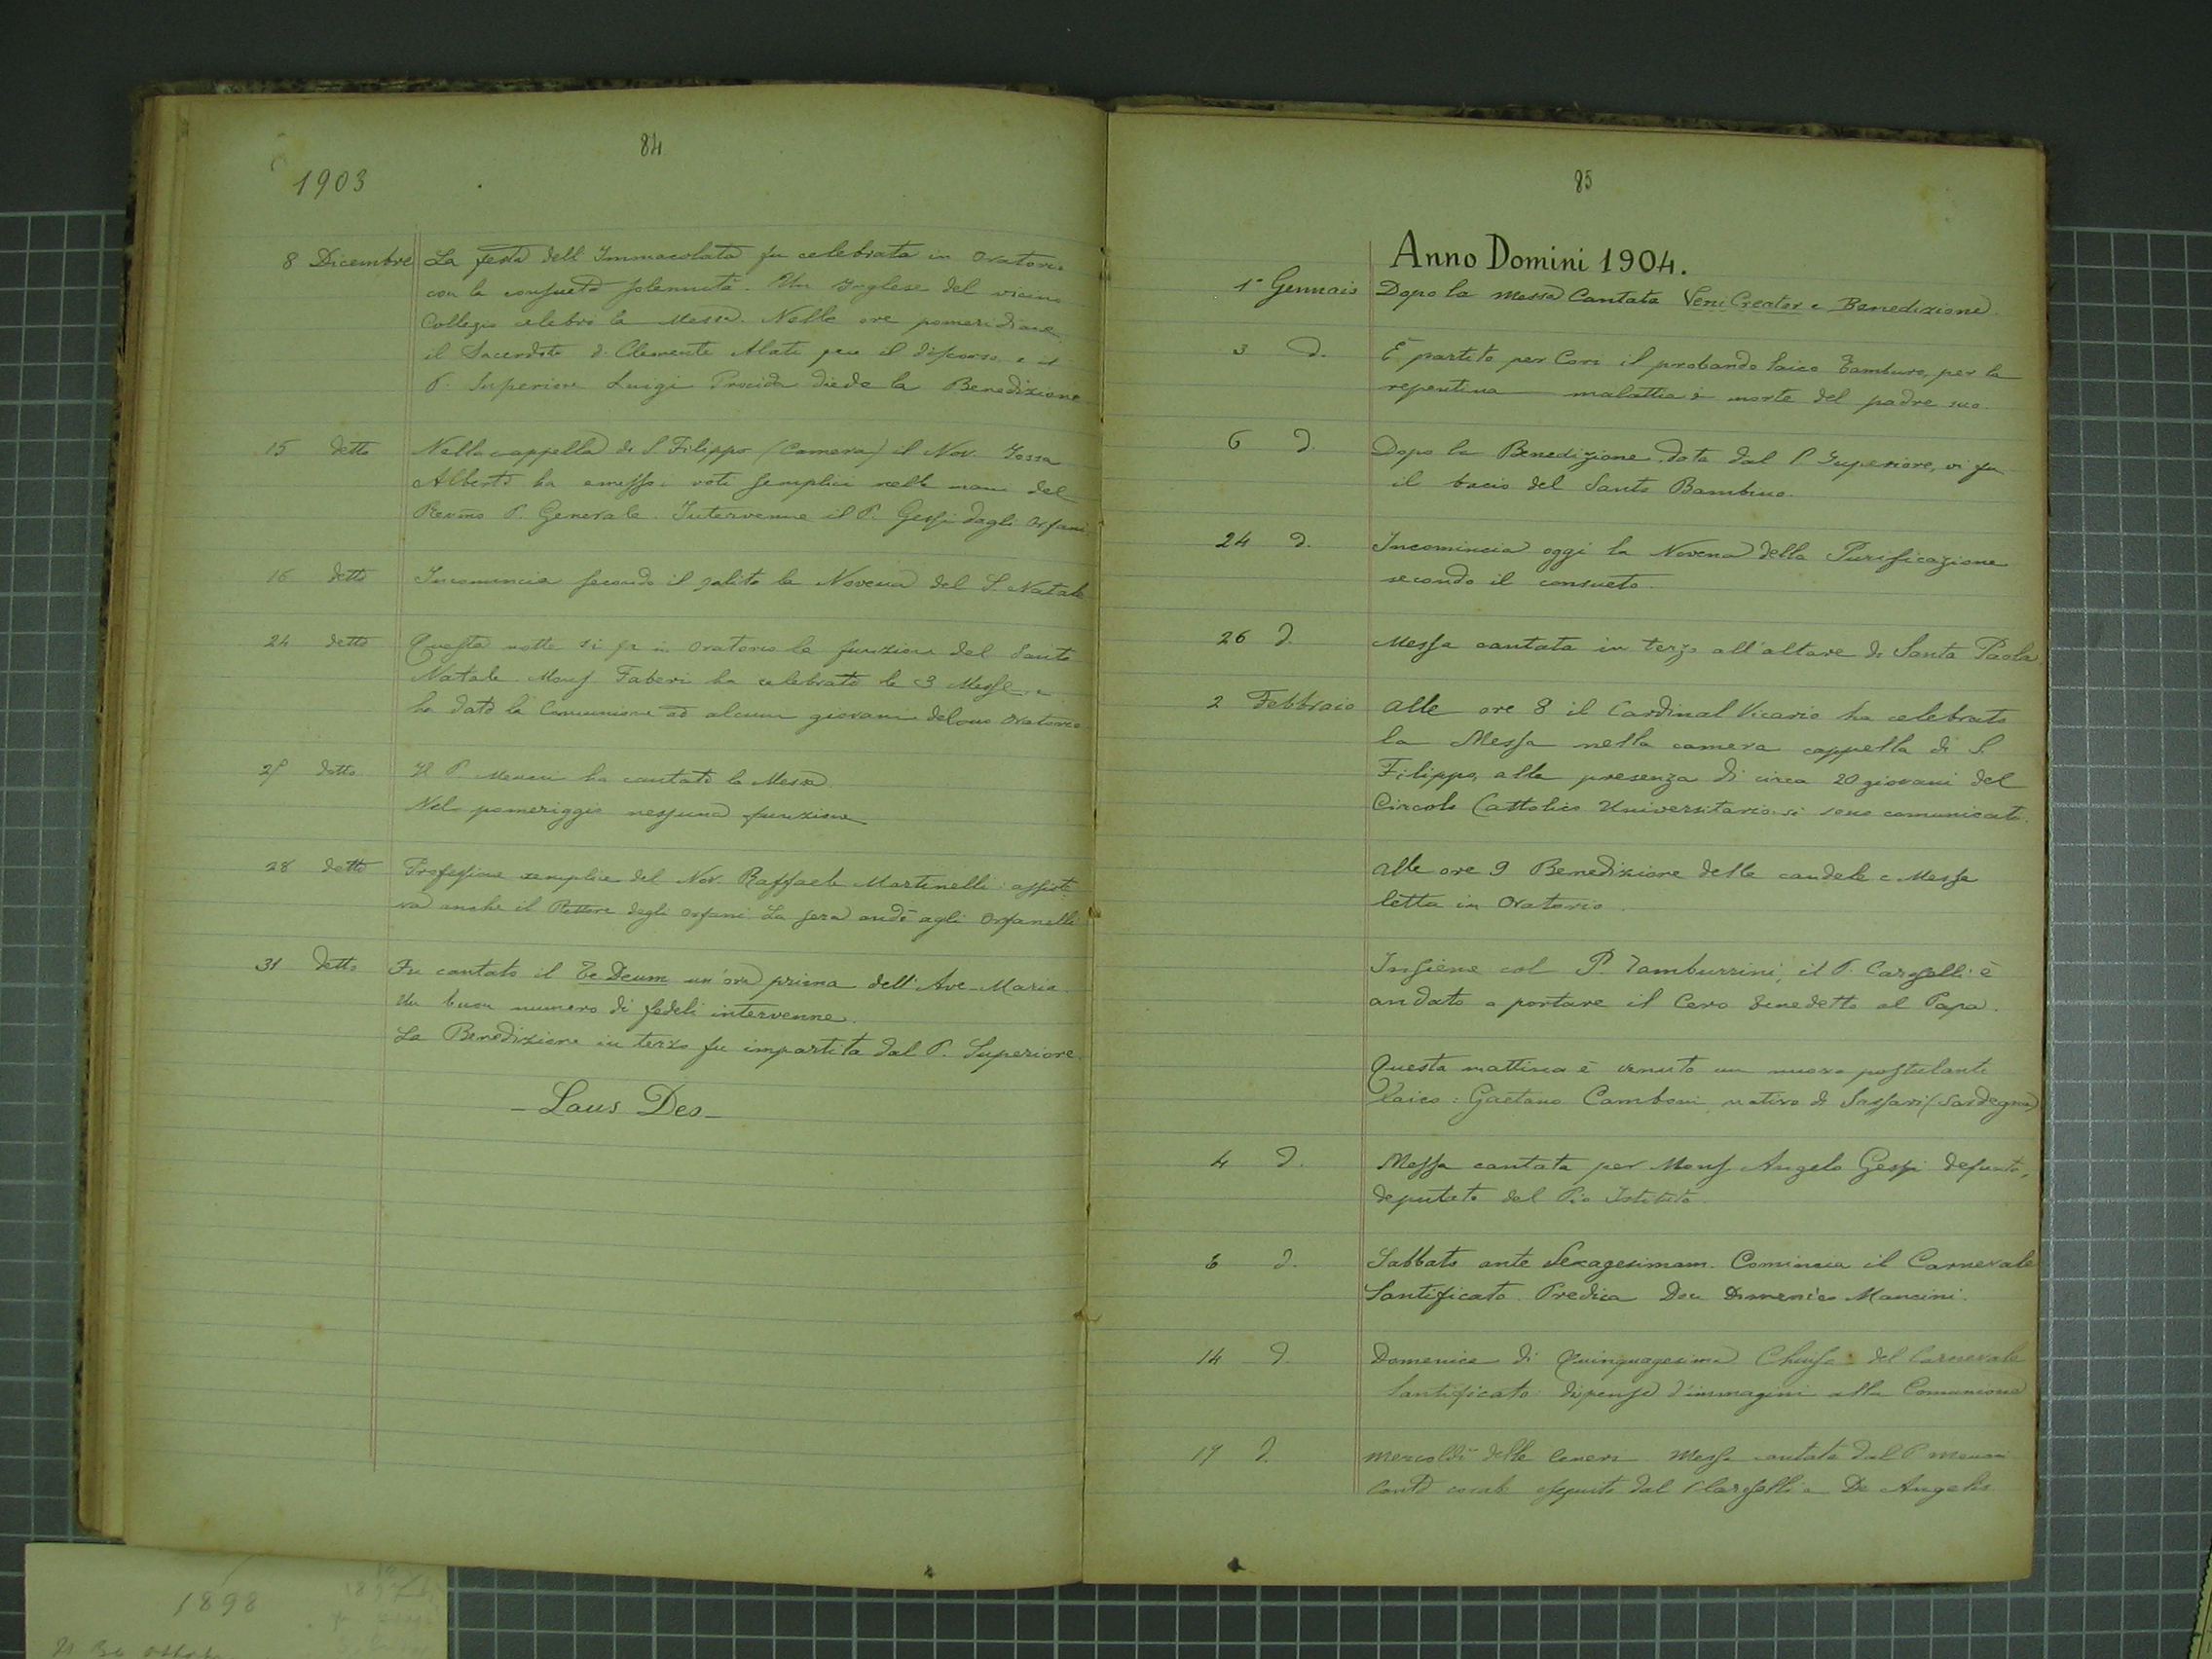 84
1903
8 Dicembre La festa dell'Immacolata fu celebrata in Oratorio
con la consueta solennità. Un Inglese del vicino
Collegio celebrò la Messa. Nelle ore pomeridiane
il Sacerdote d. Clemente Alati fece il discorso e il
P. Superiore Luigi Procida diede la Benedizione
15 detto Nella cappella di S. Filippo (Camera) il Nov. Jossa
Alberto ha emesso i voti semplici nelle mani del
Revmo P. Generale. Intervenne il P. Gessi dagli Orfani
16 detto Incomincia secondo il solito la Novena del S. Natale
24 detto Questa notte si fa in Oratorio la funzione del Santo
Natale. Mons Faberi ha celebrato le 3 Messe e
ha dato la Comunione ad alcuni giovani del suo Oratorio
25 detto Il P. Menini ha cantato la Messa.
Nel pomeriggio nessuna funzione
28 detto Professione semplice del Nov. Raffaele Martinelli: assiste-
va anche il Rettore degli Orfani. La sera andò agli Orfanelli
31 detto Fu cantato il Te Deum un'ora prima dell'Ave-Maria.
Un buon numero di fedeli intervenne.
La Benedizione in terzo fu impartita dal P. Superiore.
- Laus Deo -
85
Anno Domini 1904.
1° Gennaio Dopo la Messa Cantata Veni Creator e Benedizione.
3 d. È partito per Cori il probando laico Tamburo, per la
repentina malattia e morte del padre suo.
6 d. Dopo la Benedizione data dal P. Superiore, vi fu
il bacio del Santo Bambino.
24 d. Incomincia oggi la Novena della Purificazione
secondo il consueto.
26 d. Messa cantata in terzo all'altare di Santa Paola
2 Febbraio Alle ore 8 il Cardinal Vicario ha celebrato
la Messa nella camera cappella di S.
Filippo, alla presenza di circa 20 giovani del
Circolo Cattolico Universitario: si sono comunicati.
Alle ore 9 Benedizione delle candele e Messa
letta in Oratorio.
Insieme col P. Tamburrini, il P. Caroselli è
andato a portare il Cero benedetto al Papa.
Questa mattina è venuto un nuovo postulante
laico: Gaetano Camboni, nativo di Sassari (Sardegna)
4 d. Messa cantata per Mons Angelo Gessi defunto,
deputato del Pio Istituto.
6 d. Sabbato ante Sexagesimam. Comincia il Carnevale
Santificato. Predica Don Domenico Mancini.
14 d. Domenica di Quinquagesima Chiusa del Carnevale
Santificato: dispensa d'immagini alla Comunione
17 d. Mercoldì delle Ceneri Messa cantata dal P
Canto corale eseguito dal e De Angelis
1898